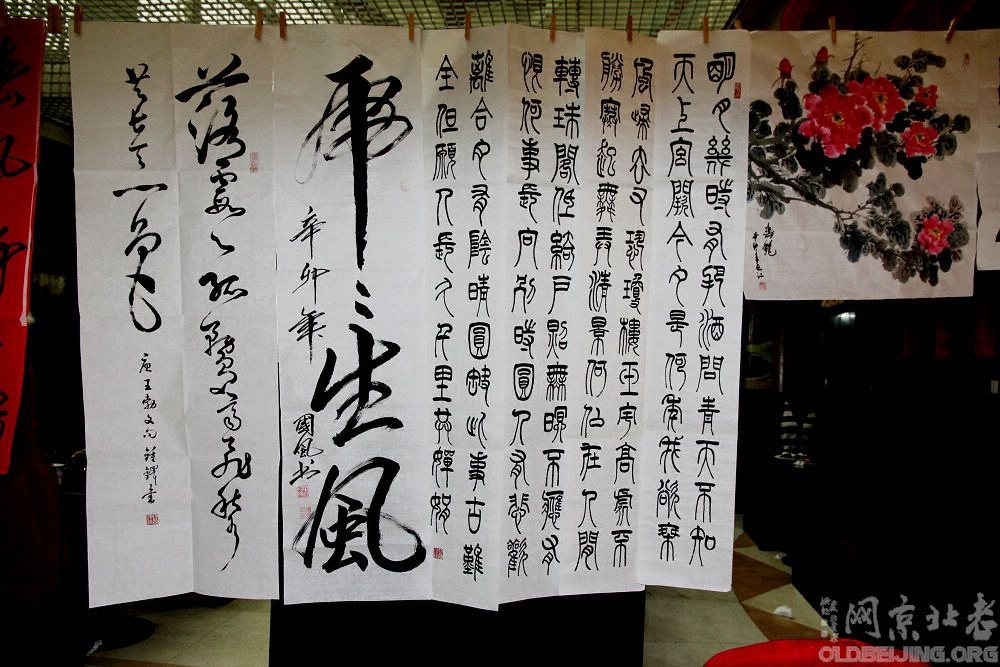 明月幾時有把酒問青天不知
天上宮闕今夕是何年我欲乘
風歸去又恐瓊樓玉宇高處不
勝寒起舞弄清影何似在人間
轉珠閣低綺戶照無眠不應有
恨何事長向別時圓人有悲歡
離合月有陰晴圓缺此事古難
全但願人長久千里共嬋娟
虎々生風
辛卯年
國風書
落霞與孤鶩齊飛秋水
共長天一色
唐王勃文句
老北京网
OLDBEIJING.ORG